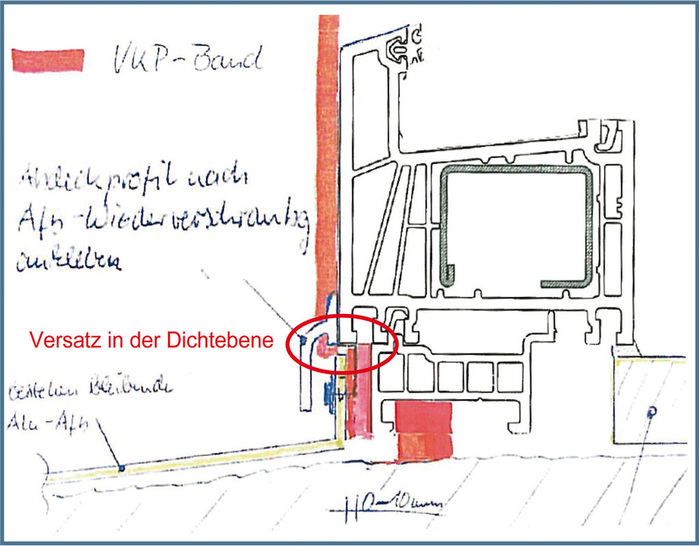 VKP-Band
Abdeckprofil nach
Afb-Wiederverschraubg
ankleben
Versatz in der Dichtebene
bestehen bleibende
Alu-Afb
0-10mm